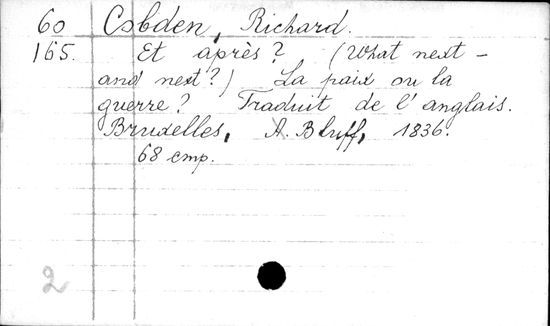 60 Cobden, Richard.
165. Et après? (What next –
and next?) La paix ou la
guerre? Traduit de l'anglais.
Bruxelles, A. Bluff, 1836.
68 стр.
2